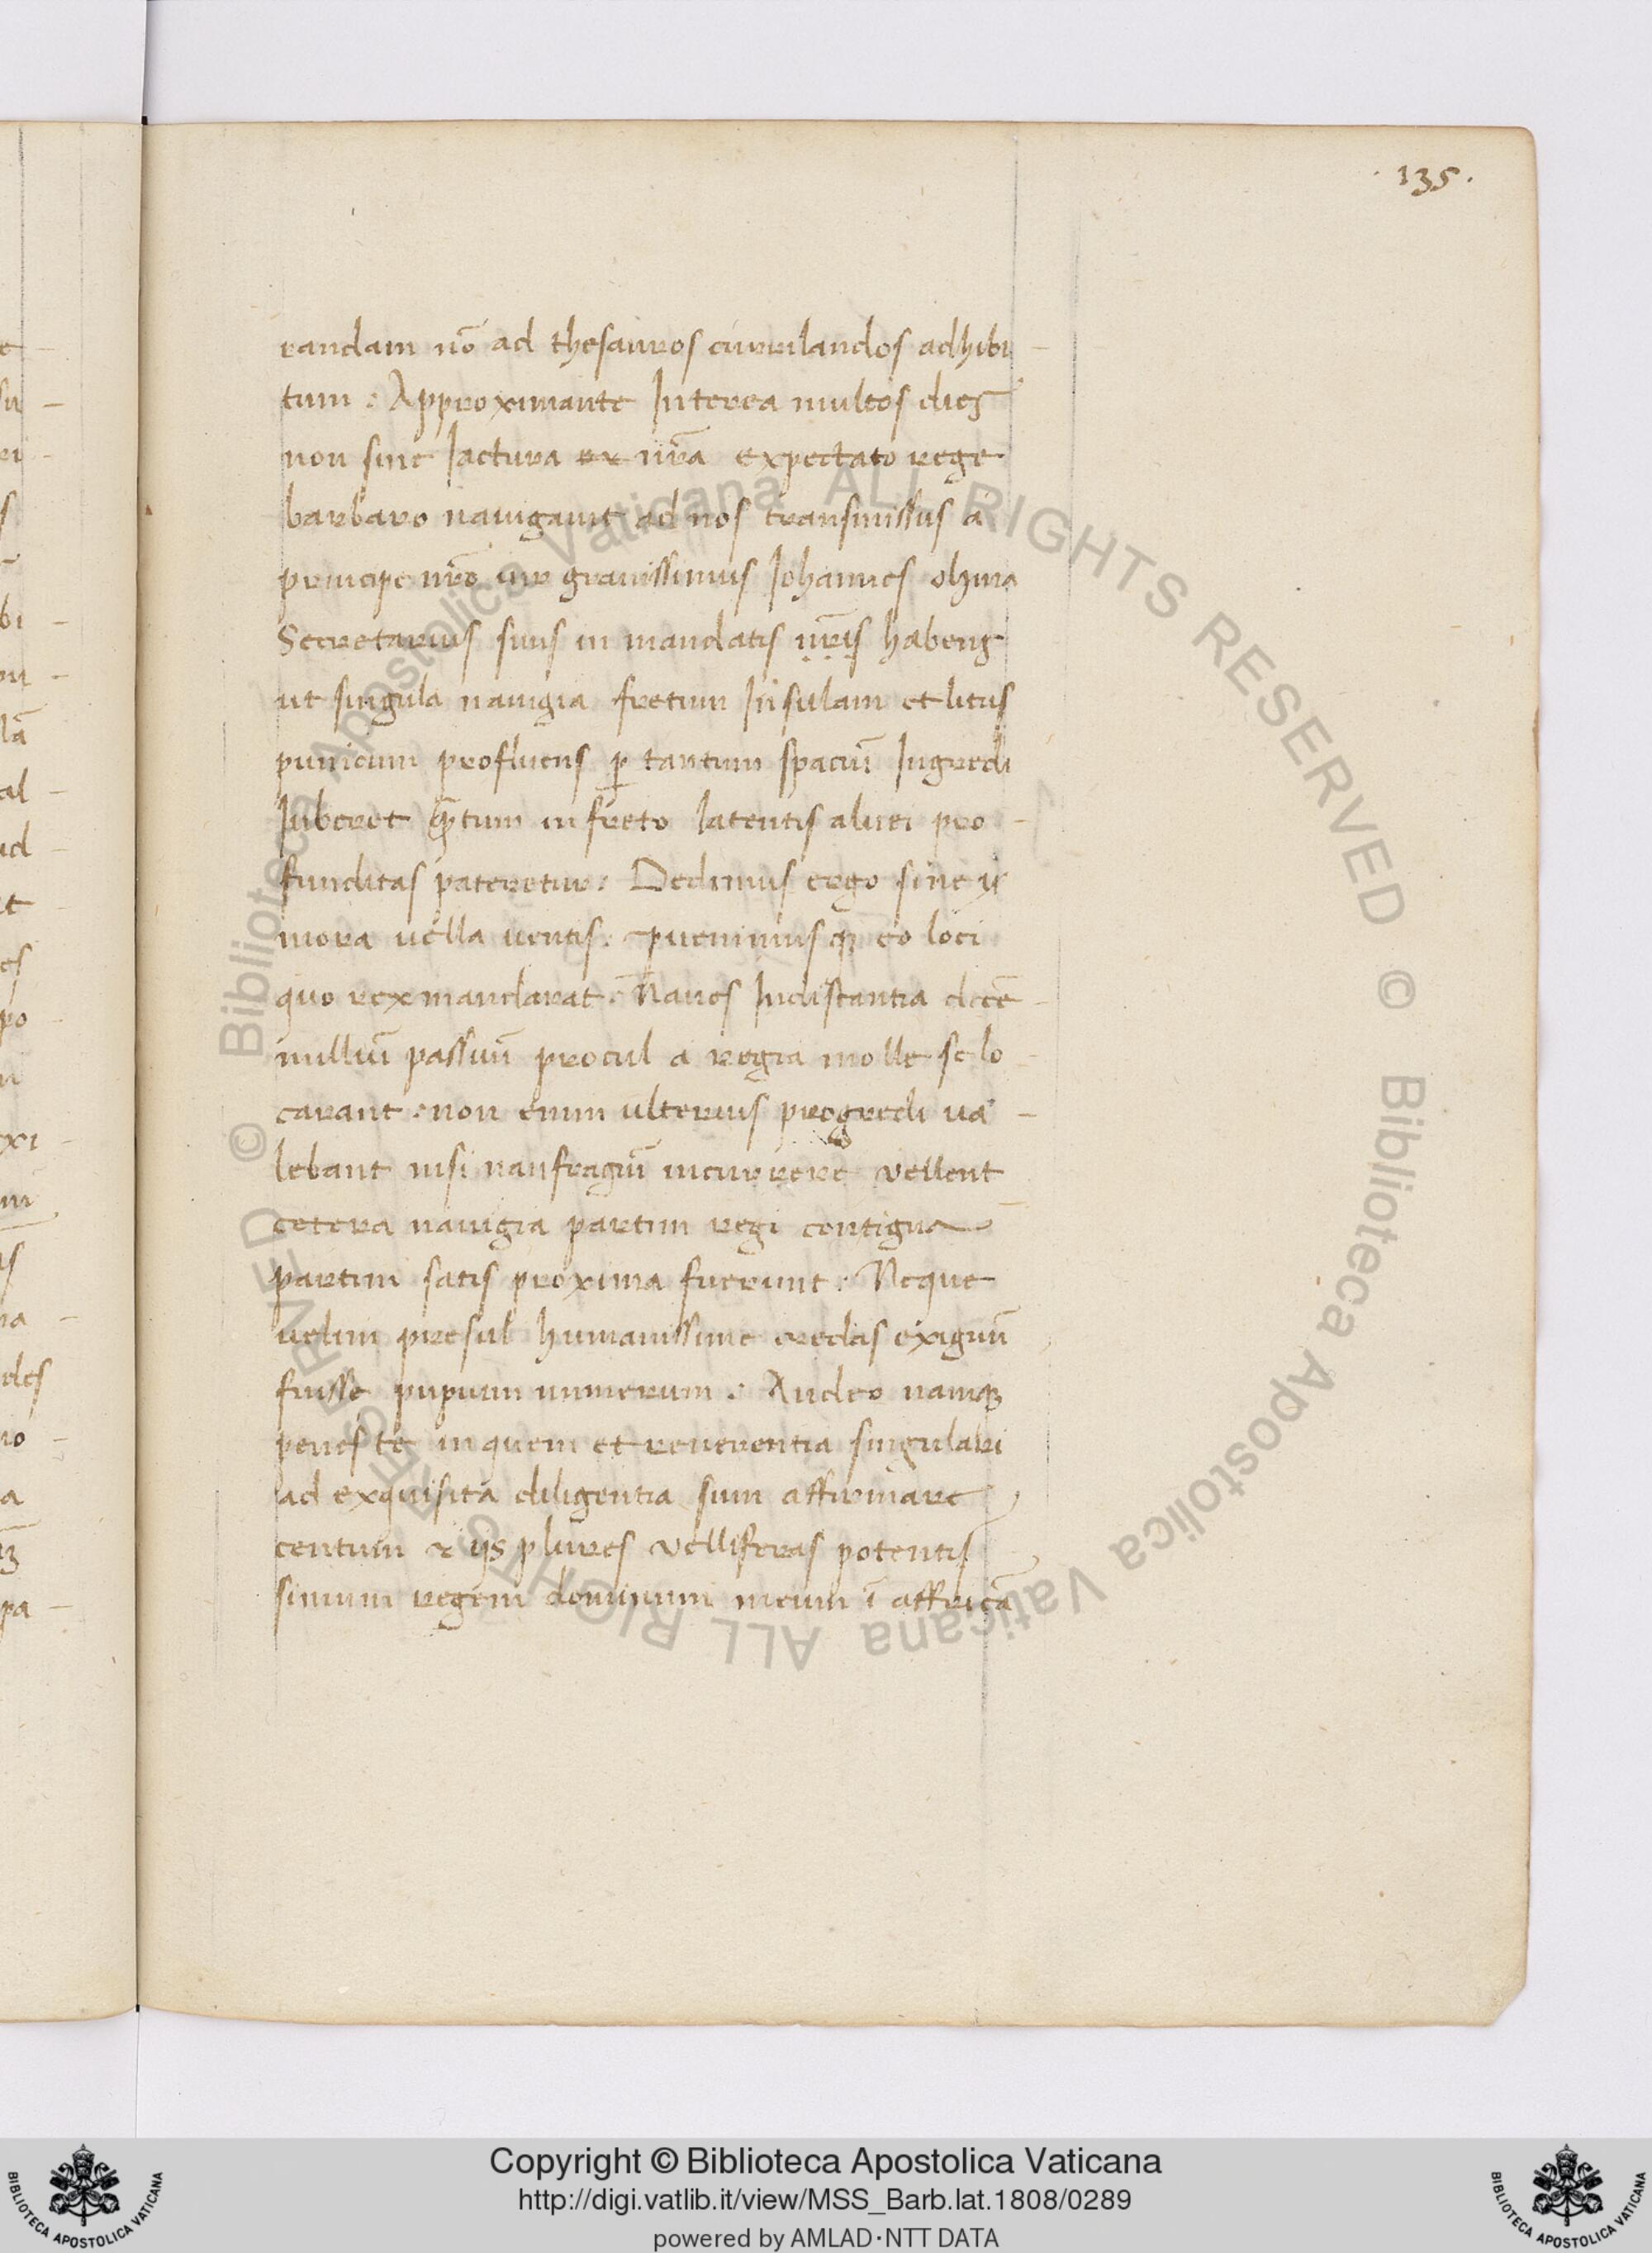 · 135 ·
randam nō ad thesauros cumulandos adhibi-
tum: Approximante Interea multos dies
non sine Iactura ex nrā expectato rege
barbaro nauigauit ad nos transmissus a
principe nrō uir grauissimus Iohannes olzina
Secretarius suus in mandatis nrīs habens
ut singula nauigia fretum Insulam et litus
punicum profluens ꝑ tantum spaciū Ingredi
Iuberet qᷓtum in freto latentis aluei pro-
funditas pateretur: Dedimus ergo sine
mora uella uentis. ꝑuenimusqꝫ eo loci
quo rex mandarat. Naues Indistantia decē
milliū passuū procul a regia molle se lo-
carant. non enim ulterius progredi ua-
lebant nisi naufragiū incurrere vellent
cetera nauigia partim regi contigua
partim satis proxima fuerunt: Neque
uelim presul humanissime credas exiguū
fuisse pupium numerum: Audeo namqꝫ
penes te in quem et reuerentia singulari
ad exquisita diligentia sum affirmare
centum & ijs plures velliferas potentis
simum regem dominum meum ī affricā
© Biblioteca Apostolica Vaticana ALL RIGHTS RESERVED © Biblioteca Apostolica Vaticana ALL RIGHTS RESERVED
Copyright © Biblioteca Apostolica Vaticana
http://digi.vatlib.it/view/MSS_Barb.lat.1808/0289
powered by AMLAD·NTT DATA
BIBLIOTECA APOSTOLICA VATICANA
BIBLIOTECA APOSTOLICA VATICANA